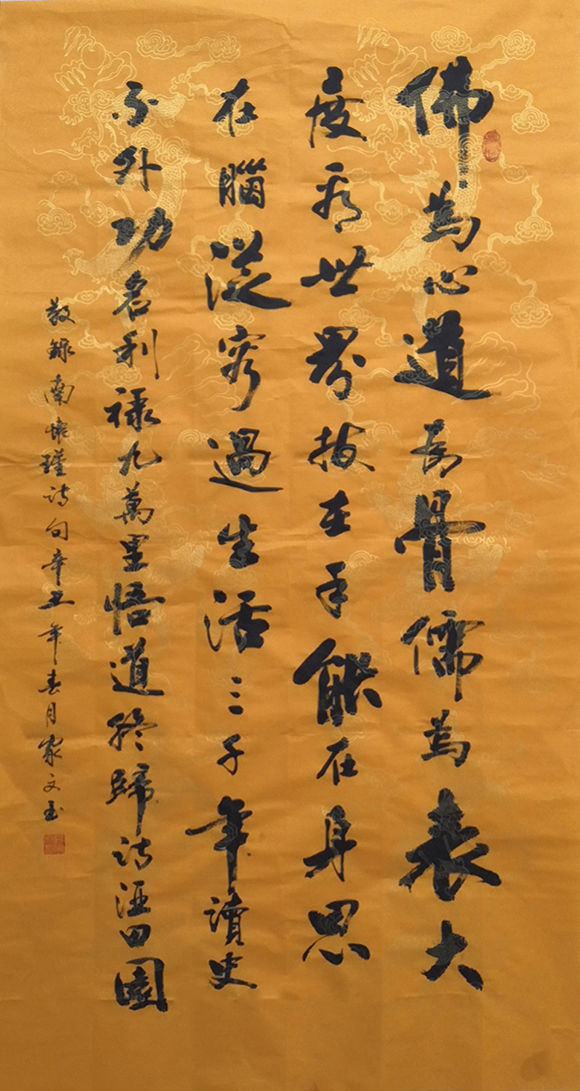 佛為心道為骨儒為表大
度看世界技在手能在身思
在腦從容過生活三千年讀史
不外功名利祿九萬里悟道終歸诗酒田園
敬錄南懷瑾诗句辛丑年春月家文